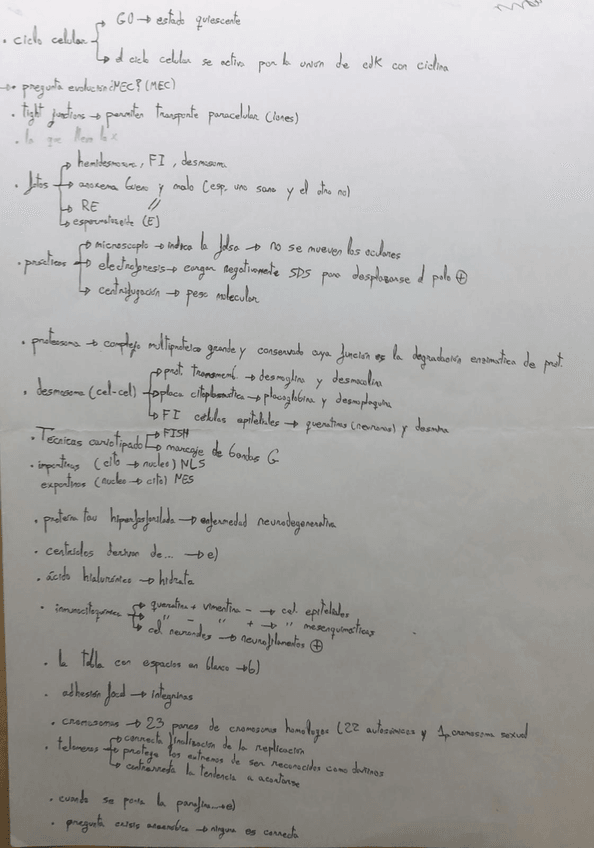 G0 → estado quiescente
· ciclo celular
el ciclo celular se activa por la unión de cdK con ciclina
→• pregunta evolución ¿MEC? (MEC)
· tight junctions → permiten transporte paracelular (iones)
· lo que lleva la x
hemidesmosoma, FI, desmosoma
· fotos → axonema bueno y malo (esp. uno sano y el otro no)
RE
espermatozoide (E)
microscopio → indica la falsa → no se mueven los oculares
· prácticas → electroforesis → cargar negativamente SDS para desplazarse al polo ⊕
centrifugación → peso molecular
· proteosoma → complejo multiproteico grande y conservado cuya función es la degradación enzimática de prot.
prot. transmemb. → desmoglina y desmocolina
· desmosoma (cel-cel) → placa citoplasmática → placoglobina y desmoplaquina
FI células epiteliales → queratinas (neuronas) y desmina
· Técnicas cariotipado → FISH
marcaje de bandas G
· importinas (cito → nucleo) NLS
exportinas (nucleo → cito) NES
· proteína tau hiperfosforilada → enfermedad neurodegenerativa
· centriolos derivan de... → e)
· ácido hialurónico → hidrata
· inmunocitoquímica → queratina + vimentina - → cel. epiteliales
" - " + → " mesenquimáticas
cel neuronales → neurofilamentos ⊕
· la tabla con espacios en blanco → b)
· adhesión focal → integrinas
· cromosomas → 23 pares de cromosomas homólogos (22 autosómicos y 1p cromosoma sexual
· telomeros → correcta finalización de la replicación
protege los extremos de ser reconocidos como dañinos
contrarresta la tendencia a acortarse
· cuando se pone la parafina... → e)
· pregunta crisis anaeróbico → ninguna es correcta